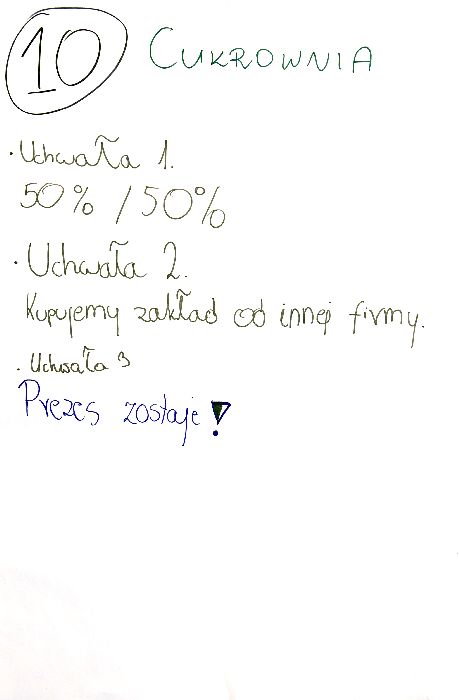 10 CUKROWNIA
· Uchwała 1.
50% / 50%
· Uchwała 2.
Kupujemy zakład od innej firmy.
· Uchwała 3
Prezes zostaje!